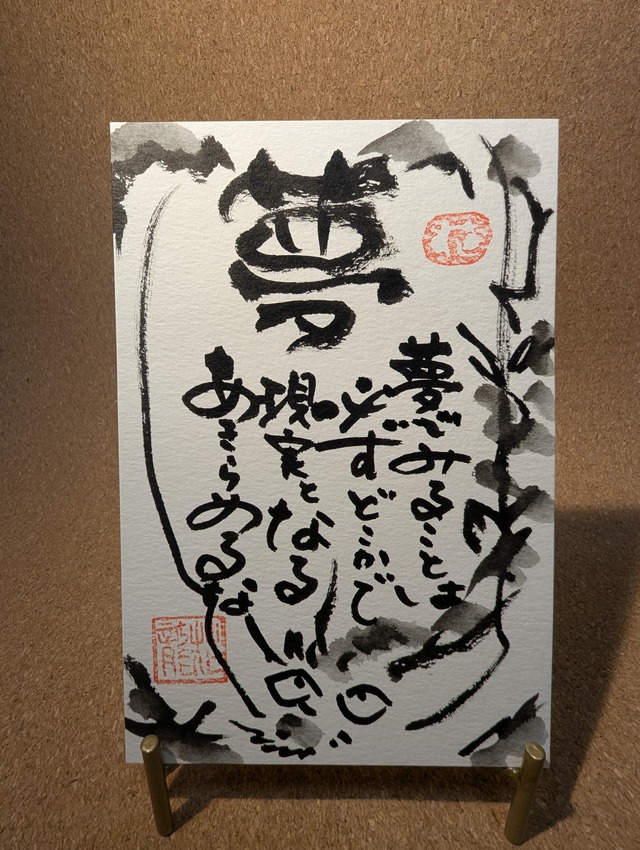 夢
夢でみることは
必ずどこかで
現実となる
あきらめるな